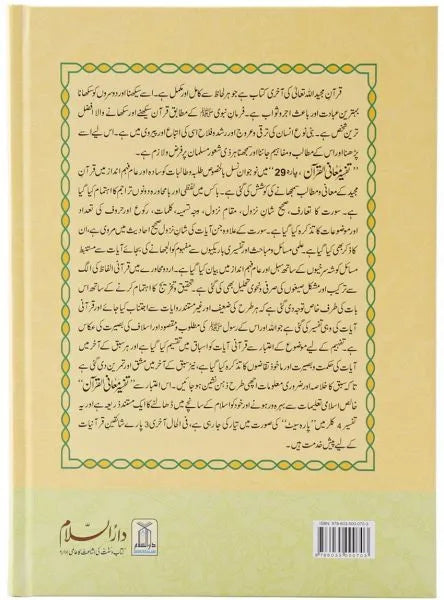 قرآن مجید اللہ تعالیٰ کی آخری کتاب ہے جو ہر لحاظ سے کامل اور مکمل ہے۔ اسے سیکھنا اور دوسروں کو سکھانا
بہترین عبادت اور باعثِ اجر و ثواب ہے۔ فرمانِ نبوی ﷺ کے مطابق قرآن سیکھنے اور سکھانے والا افضل
ترین شخص ہے۔ بنی نوع انسان کی ترقی و عروج اور رشد و فلاح اسی کی اتباع اور پیروی میں ہے۔ اس لیے اسے
پڑھنا اور اس کے مطالب و مفاہیم جاننا اور سمجھنا ہر ذی شعور مسلمان پر فرض و لازم ہے۔
"تفسیر معانی القرآن، پارہ 29" میں نوجوان نسل بالخصوص طلبہ و طالبات کو سادہ اور عام فہم انداز میں قرآن
مجید کے معانی و مطالب سمجھانے کی کوشش کی گئی ہے۔ جس میں لفظی اور بامحاورہ دونوں تراجم کا اہتمام کیا گیا
ہے۔ سورت کا تعارف، صحیح شانِ نزول، مقامِ نزول، وجہ تسمیہ، کلمات، رکوع اور حروف کی تعداد
اور موضوعات کا تذکرہ کیا گیا ہے۔ سورت کے علاوہ جن آیات کی شانِ نزول صحیح احادیث میں مروی ہے، ان
کا ذکر بھی کیا گیا ہے۔ علمی مسائل و مباحث اور تفسیری باریکیوں سے مفہوم کو الجھانے کی بجائے آیات سے مستنبط
مسائل کو مختصر سرخیوں کے ساتھ سہل اور عام فہم انداز میں بیان کیا گیا ہے۔ اردو محاورے میں قرآنی الفاظ کی الگ
سے ترکیب اور مشکل صیغوں کی صرفی و نحوی تحلیل بھی کی گئی ہے۔ تحقیق و تخریج کا اہتمام کرنے کے ساتھ اس
بات کی طرف خاص توجہ دی گئی ہے کہ ہر طرح کی ضعیف اور غیر مستند روایات سے اجتناب کیا جائے اور قرآنی
آیات کی وہی تفسیر کی گئی ہے جو اللہ اور اس کے رسول ﷺ کی مطلوب و مقصود اور اسلاف کی بصیرت کی عکاس
ہے۔ تفہیم کے لیے موضوع کے اعتبار سے قرآنی آیات کو اسباق میں تقسیم کیا گیا ہے اور ہر سبق کے آخر میں
آیات کی حکمت و بصیرت اور ماخوذ تقاضوں کا تذکرہ کیا گیا ہے، نیز سبق کے آخر میں مشق اور تمرین دی گئی ہے
تاکہ سبق کا خلاصہ اور ضروری معلومات اچھی طرح ذہن نشین ہو جائیں۔ اس اعتبار سے "تفسیر معانی القرآن"
خالص اسلامی تعلیمات سے بہرہ ور ہونے اور خود کو اسلام کے سانچے میں ڈھالنے کا ایک مستند ذریعہ ہے اور یہ
تفسیر 4 کلر میں "پارہ سیٹ" کی صورت میں تیار کی جا رہی ہے، فی الحال آخری 3 پارے شائقینِ قرآنیات
کے لیے پیش خدمت ہیں۔
دارالسلام
کتاب و سنت کی اشاعت کا عالمی ادارہ
دارالسلام
DARUSSALAM
ISBN: 978-603-500-070-3
9786035000703